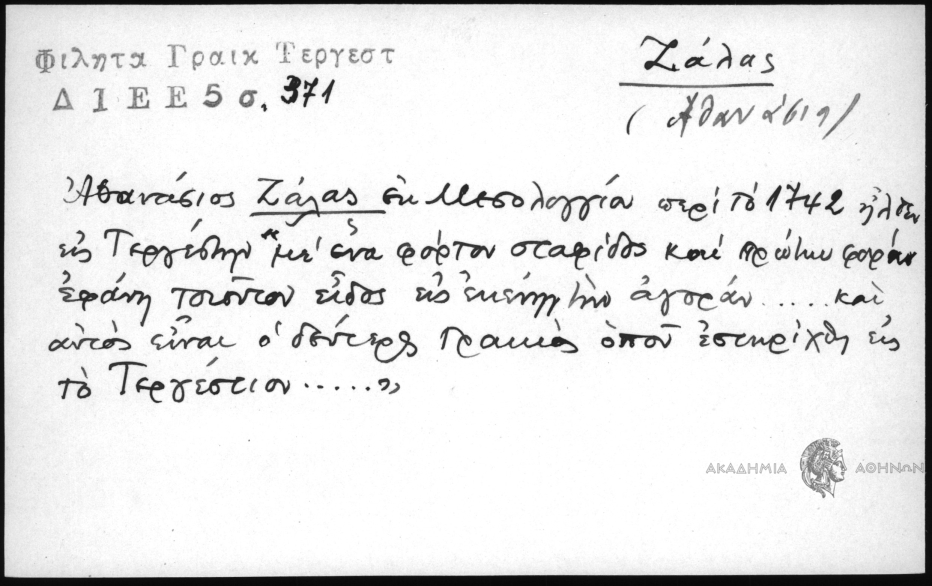 Φιλητα Γραικ Τεργεστ
Δ Ι Ε Ε 5 σ. 371
Ζάλας
(Ἀθανάσιος)
Ἀθανάσιος Ζάλας ἐκ Μεσολογγίου περί τό 1742 ἦλθεν
εἰς Τεργέστην "μέ ἕνα φόρτον σταφίδος καί πρώτην φοράν
ἐφάνη τοιοῦτον εἶδος εἰς ἐκείνην τὴν ἀγοράν..... καὶ
αὐτὸς εἶναι ὁ δεύτερος Γραικὸς ὁποῦ ἐστηρίχθη εἰς
τὸ Τεργέστιον.....»
ΑΚΑΔΗΜΙΑ ΑΘΗΝΩΝ